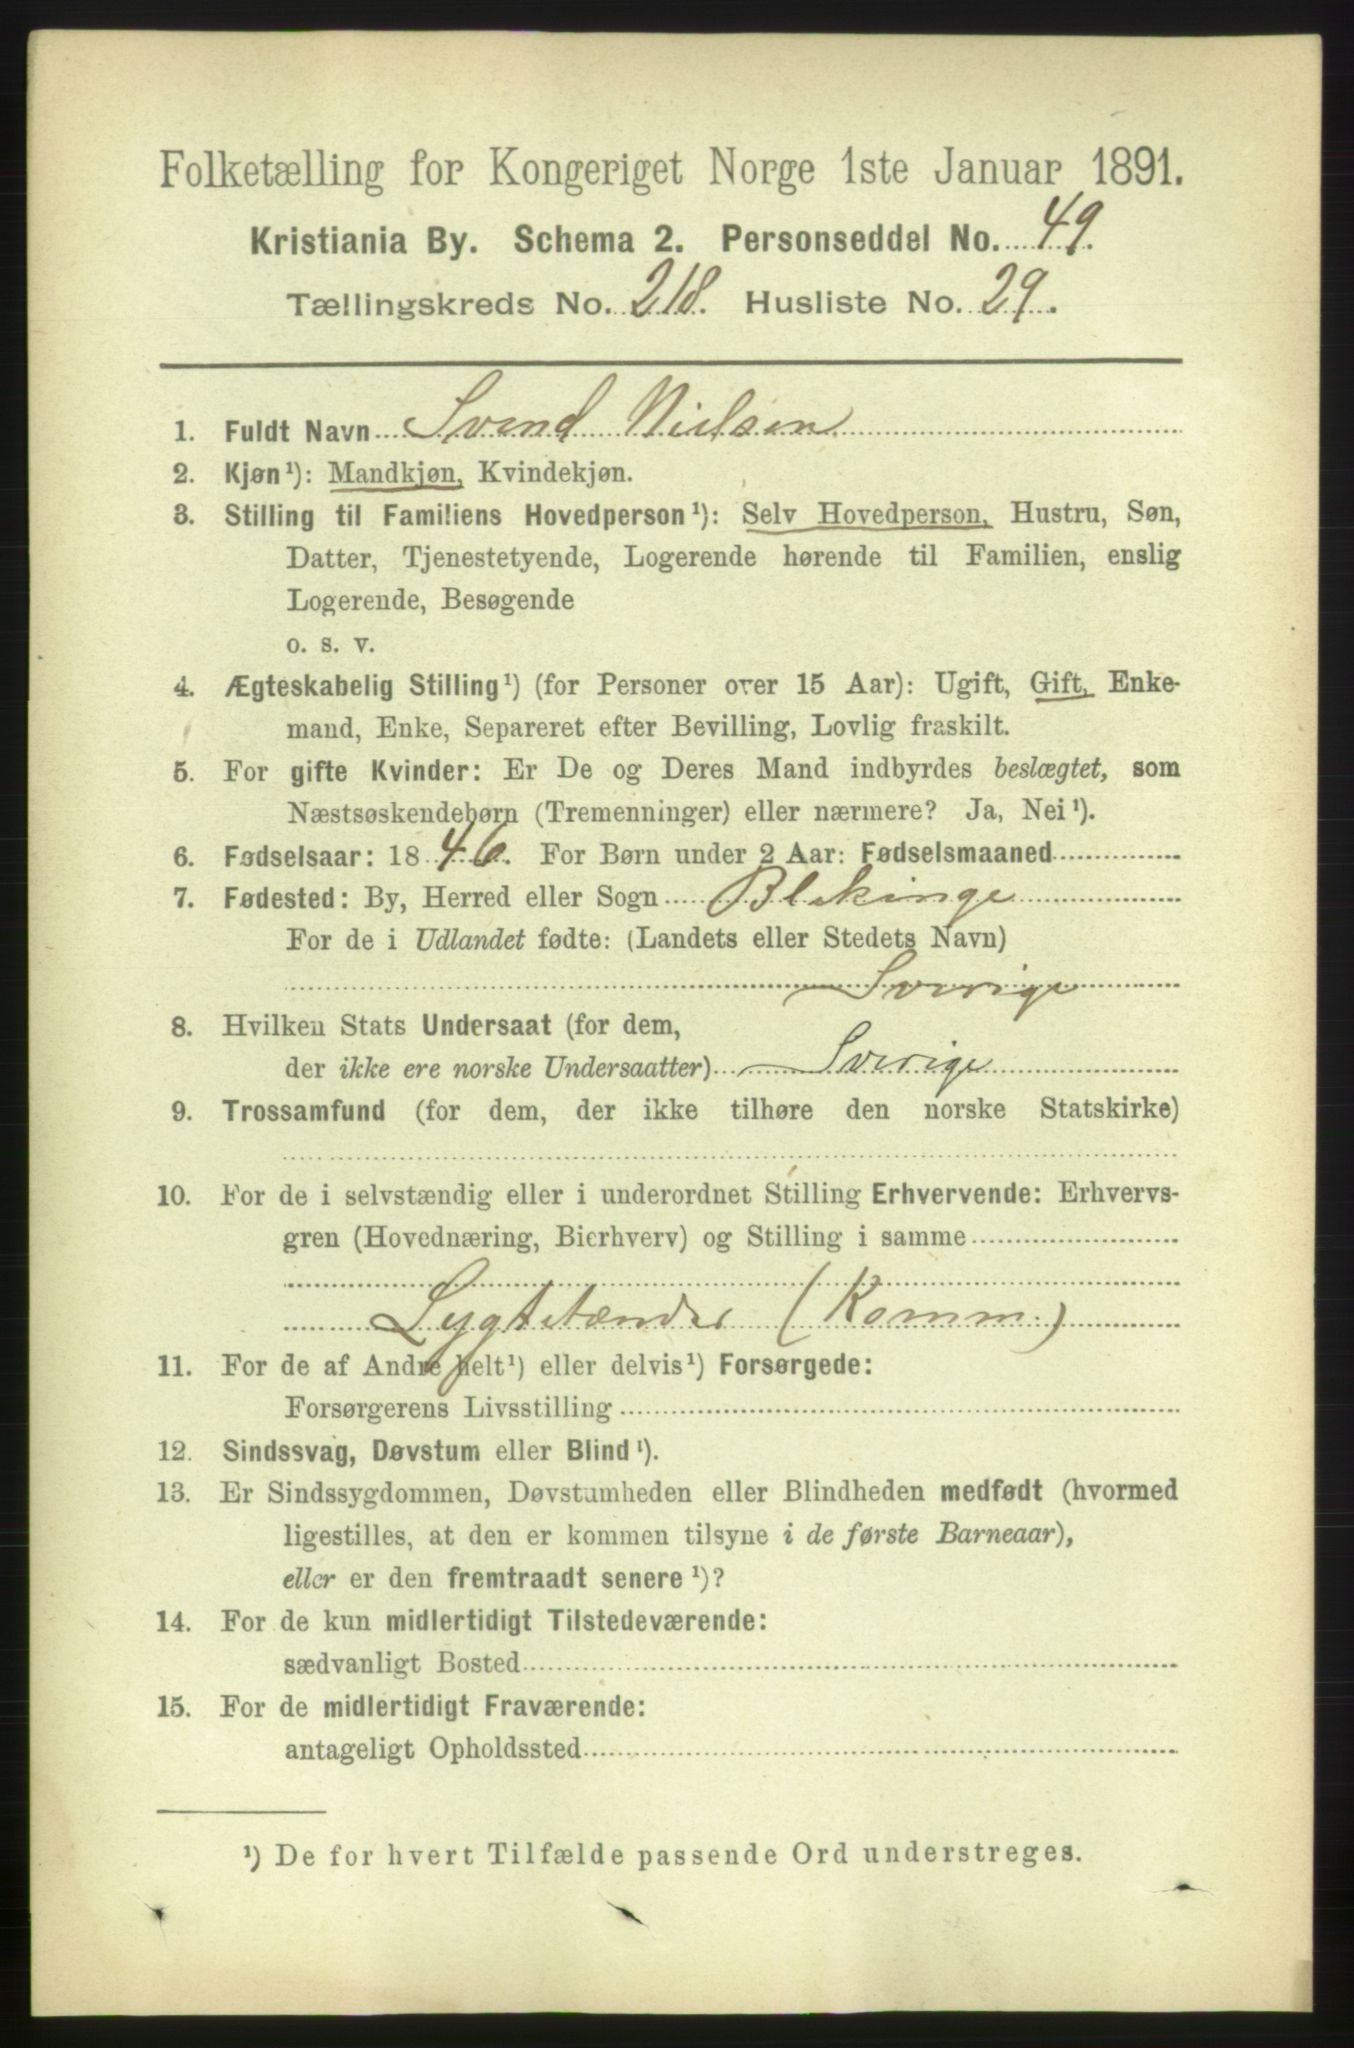 Folketælling for Kongeriget Norge 1ste Januar 1891.
Kristiania By. Schema 2. Personseddel No. 49.
Tællingskreds No. 218. Husliste No. 29.
1. Fuldt Navn Svend Nielsen
2. Kjøn¹): Mandkjøn, Kvindekjøn.
3. Stilling til Familiens Hovedperson¹): Selv Hovedperson, Hustru, Søn,
Datter, Tjenestetyende, Logerende hørende til Familien, enslig
Logerende, Besøgende
o. s. v.
4. Ægteskabelig Stilling¹) (for Personer over 15 Aar): Ugift, Gift, Enke-
mand, Enke, Separeret efter Bevilling, Lovlig fraskilt.
5. For gifte Kvinder: Er De og Deres Mand indbyrdes beslægtet, som
Næstsøskendebørn (Tremenninger) eller nærmere? Ja, Nei¹).
6. Fødselsaar: 1846. For Børn under 2 Aar: Fødselsmaaned
7. Fødested: By, Herred eller Sogn Blekinge
For de i Udlandet fødte: (Landets eller Stedets Navn)
Sverige
8. Hvilken Stats Undersaat (for dem,
der ikke ere norske Undersaatter) Sverige
9. Trossamfund (for dem, der ikke tilhøre den norske Statskirke)
10. For de i selvstændig eller i underordnet Stilling Erhvervende: Erhvervs-
gren (Hovednæring, Bierhverv) og Stilling i samme
Lygtetænder (Komm.)
11. For de af Andre helt¹) eller delvis¹) Forsørgede:
Forsørgerens Livsstilling
12. Sindssvag, Døvstum eller Blind¹).
13. Er Sindssygdommen, Døvstumheden eller Blindheden medfødt (hvormed
ligestilles, at den er kommen tilsyne i de første Barneaar),
eller er den fremtraadt senere¹)?
14. For de kun midlertidigt Tilstedeværende:
sædvanligt Bosted
15. For de midlertidigt Fraværende:
antageligt Opholdssted
¹) De for hvert Tilfælde passende Ord understreges.